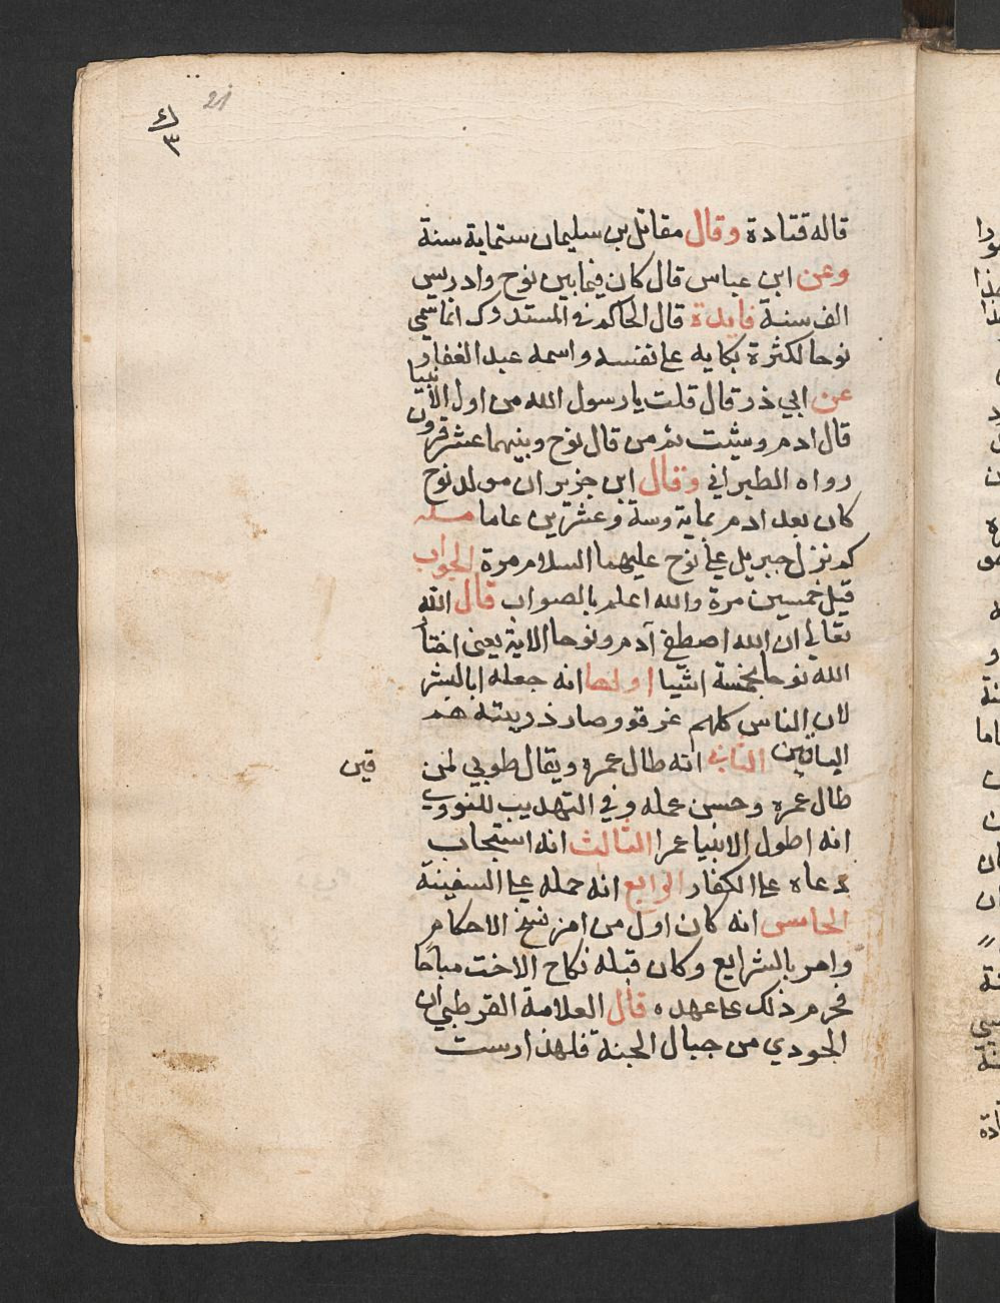 21
٤١
٣
قاله قتادة وقال مقاتل بن سليمان ستماية سنة
وعن ابن عباس قال كان فيما بين نوح وادريس
الف سنة فايدة قال الحاكم في المستدرك انما سمي
نوحا لكثرة بكايه على نفسه واسمه عبد الغفار
عن ابي ذر قال قلت يا رسول الله من اول الانبيا
قال ادم وشيث ثم من قال نوح وبينهما عشر قرون
رواه الطبراني وقال ابن جرير ان مولد نوح
كان بعد ادم بماية وستة وعشرين عاما مسله
كم نزل جبريل على نوح عليهما السلام مرة الجواب
قيل خمسين مرة والله اعلم بالصواب قال الله
تعالى ان الله اصطفى آدم ونوحا الاية يعني اختار
الله نوحا بخمسة اشيا اولها انه جعله ابا البشر
لان الناس كلهم غرقو وصار ذريته هم
الباقين الثاني انه طال عمره ويقال طوبي لمن
قين
طال عمره وحسن عمله وفي التهذيب للنووي
انه اطول الانبيا عمرا الثالث انه استجاب
دعاه على الكفار الرابع انه حمله على السفينة
الخامس انه كان اول من امر نسخ الاحكام
وامر بالشرايع وكان قبله نكاح الاخت مباحا
فحرم ذلك على عهده قال العلامة القرطبي ان
الجودي من جبال الجنة فلهذا رست